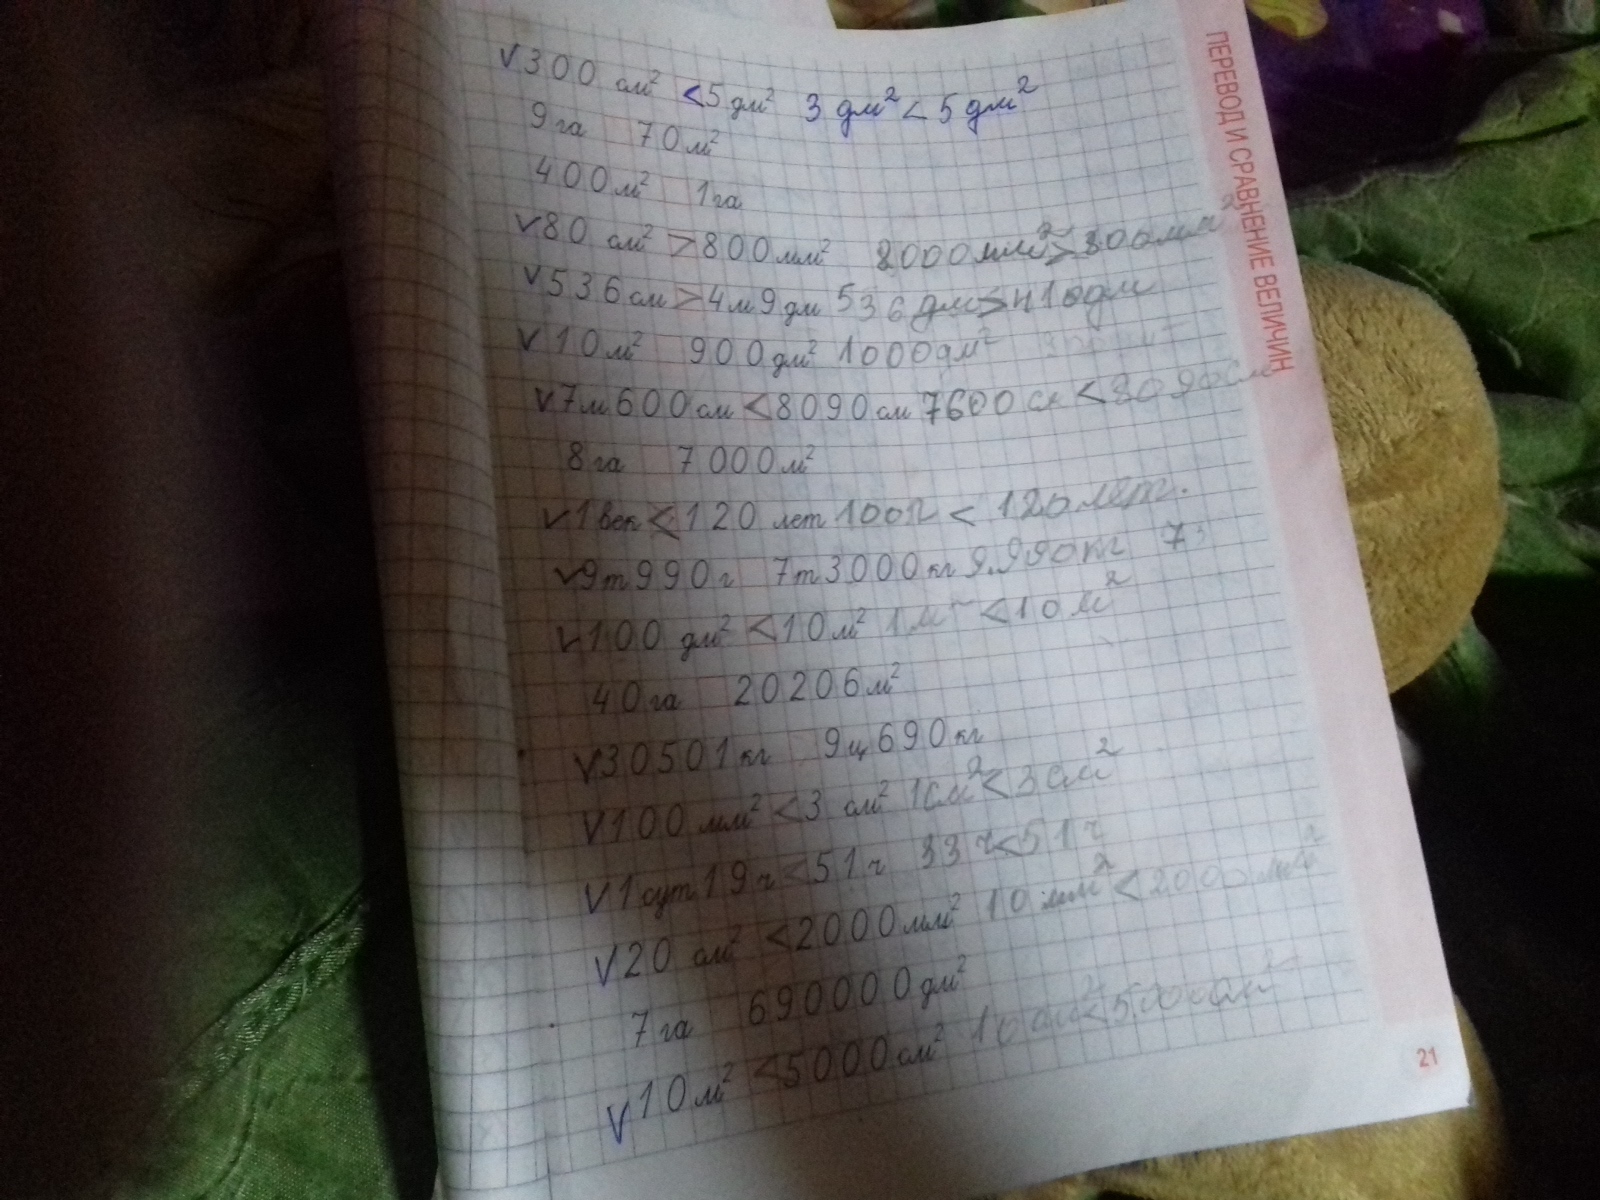 √300 см² <5 дм² 3 дм² < 5 дм²
9 га 70 м²
400 м² 1 га
√80 см² >800 мм² 8000 мм² > 800 мм²
√536 см >4 м 9 дм 536 дм > 410 дм
√10 м² 900 дм² 1000 дм²
√7 м 600 см <8090 см 7600 см < 8090 см
8 га 7000 м²
√1 век <120 лет 100 л < 120 лет.
√9 т 990 г 7 т 3000 кг 9.990 кг 7
√100 дм² <10 м² 1 м² <10 м²
40 га 20206 м²
√30501 кг 9 ц 690 кг
√100 мм² <3 см² 1 см² < 3 см²
√1 сут 19 ч <51 ч 33 ч <51 ч
√20 см² <2000 мм² 10 мм² <2000 мм²
7 га 690000 дм²
√10 м² <5000 см² 10 см² <5000 см²
ПЕРЕВОД И СРАВНЕНИЕ ВЕЛИЧИН
21